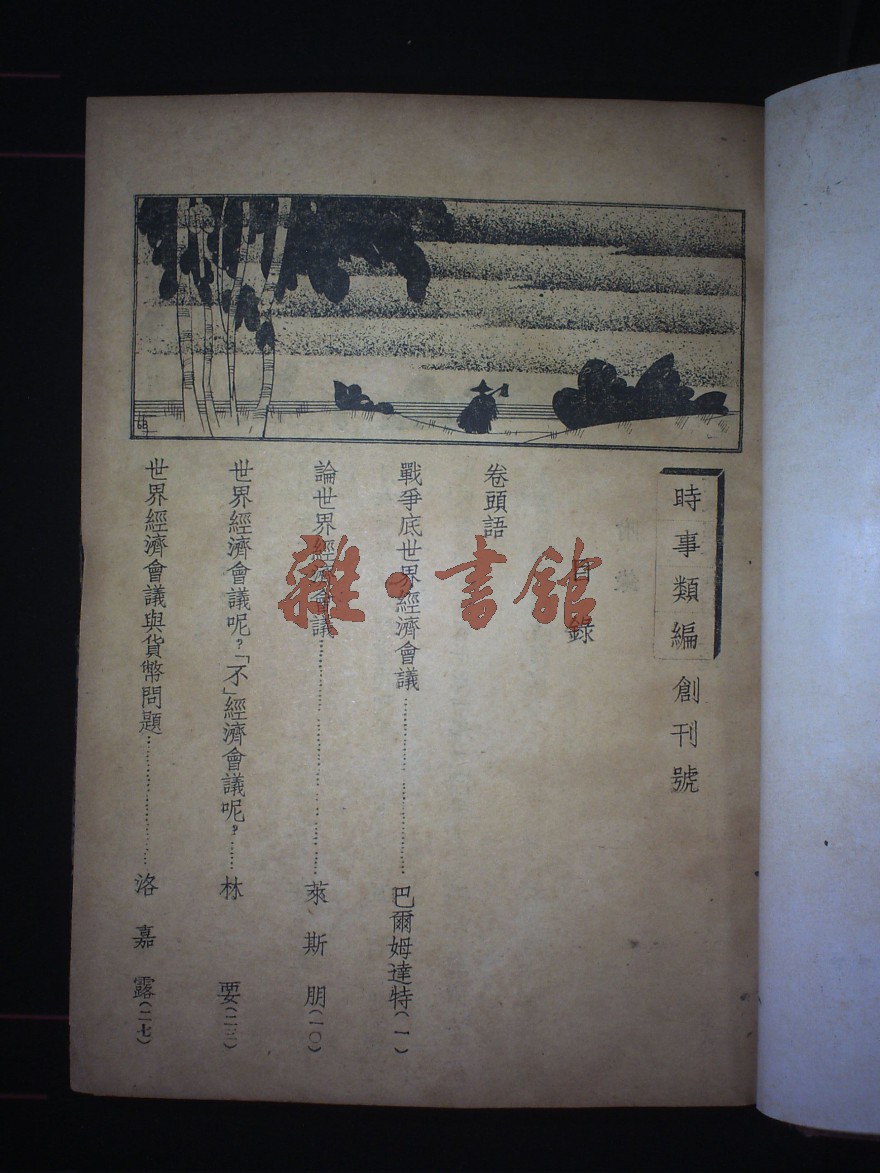 時事類編創刊號
目錄
卷頭語
戰爭底世界經濟會議……巴爾姆達特(一)
論世界經濟會議……萊斯朋(一〇)
世界經濟會議呢?「不」經濟會議呢?……林 要(二三)
世界經濟會議與貨幣問題……洛嘉露(二七)
雜·書館